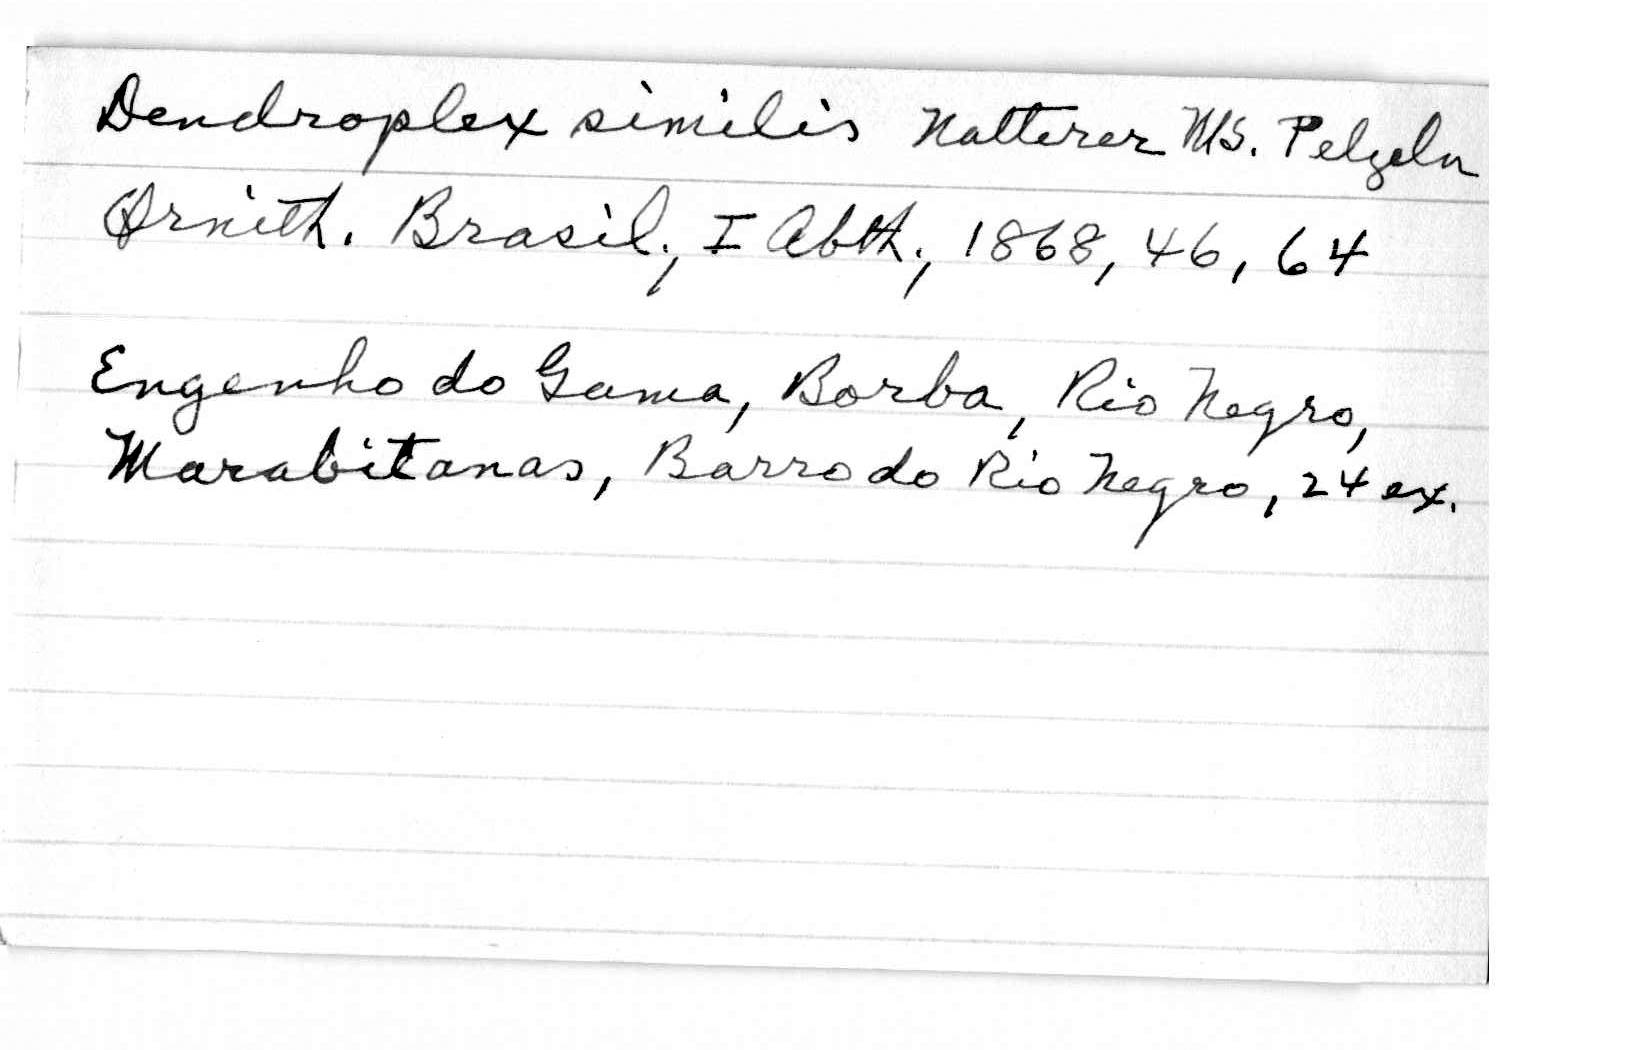 Dendroplex similis Natterer MS. Pelzeln
Ornith. Brasil., I Abth., 1868, 46, 64
Engenho do Gama, Borba, Rio Negro,
Marabitanas, Barro do Rio Negro, 24 ex.